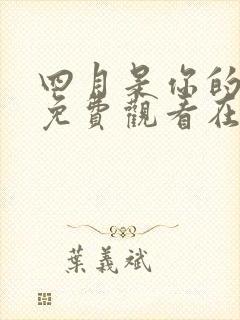 四月是你的
免費觀看在
葉義斌